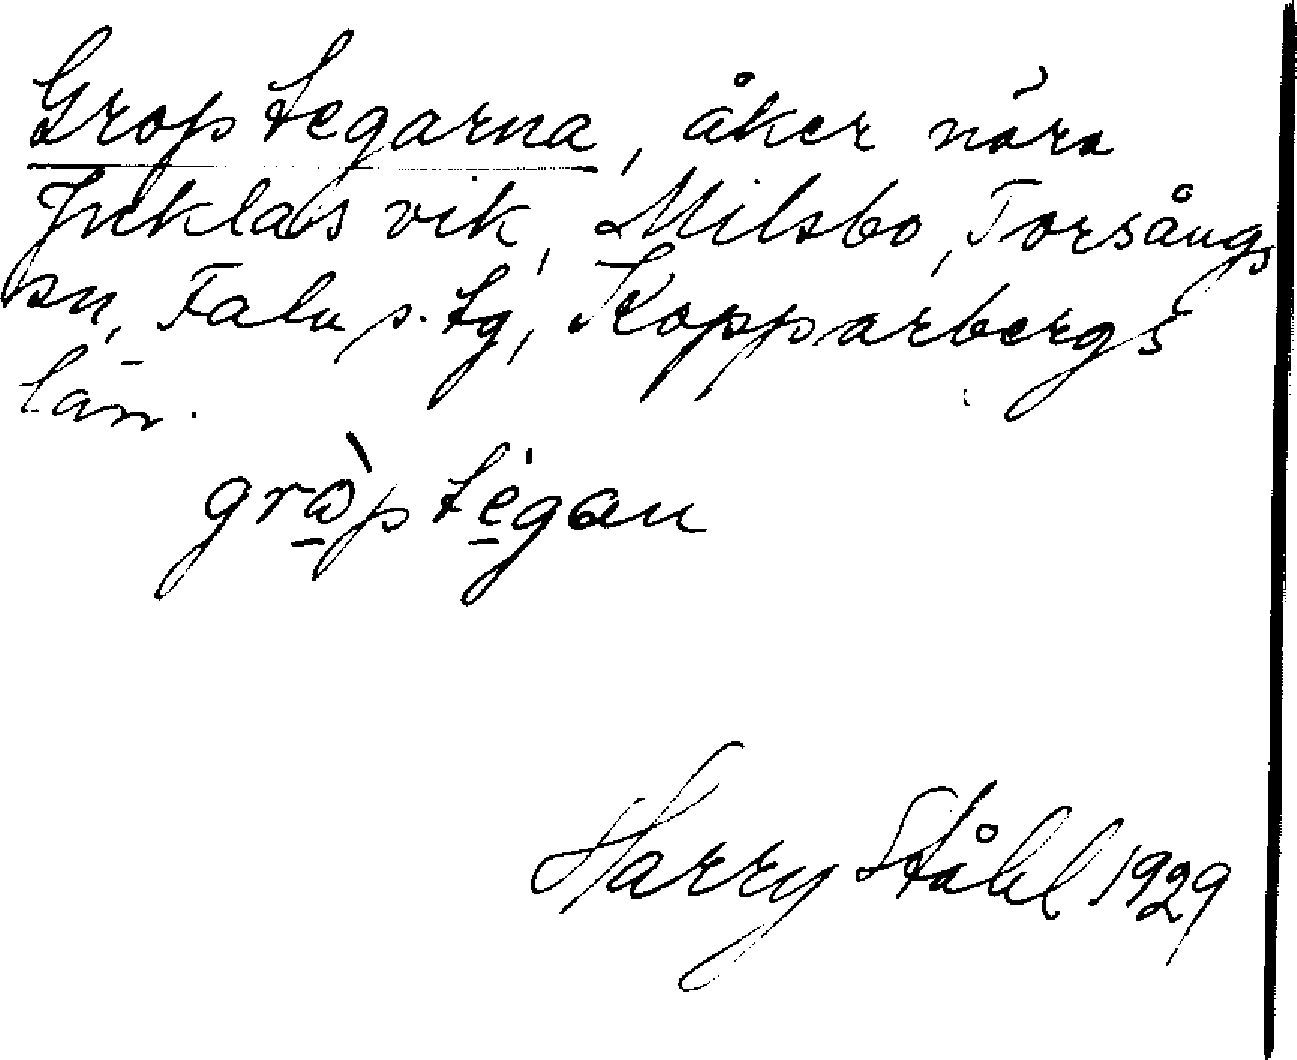 Groptegarna, åker nära
Jneklas vik, Milsbo, Torsångs
sn, Falu s. tg, Kopparbergs
län.
gròptégan
Harry Ståhl 1929